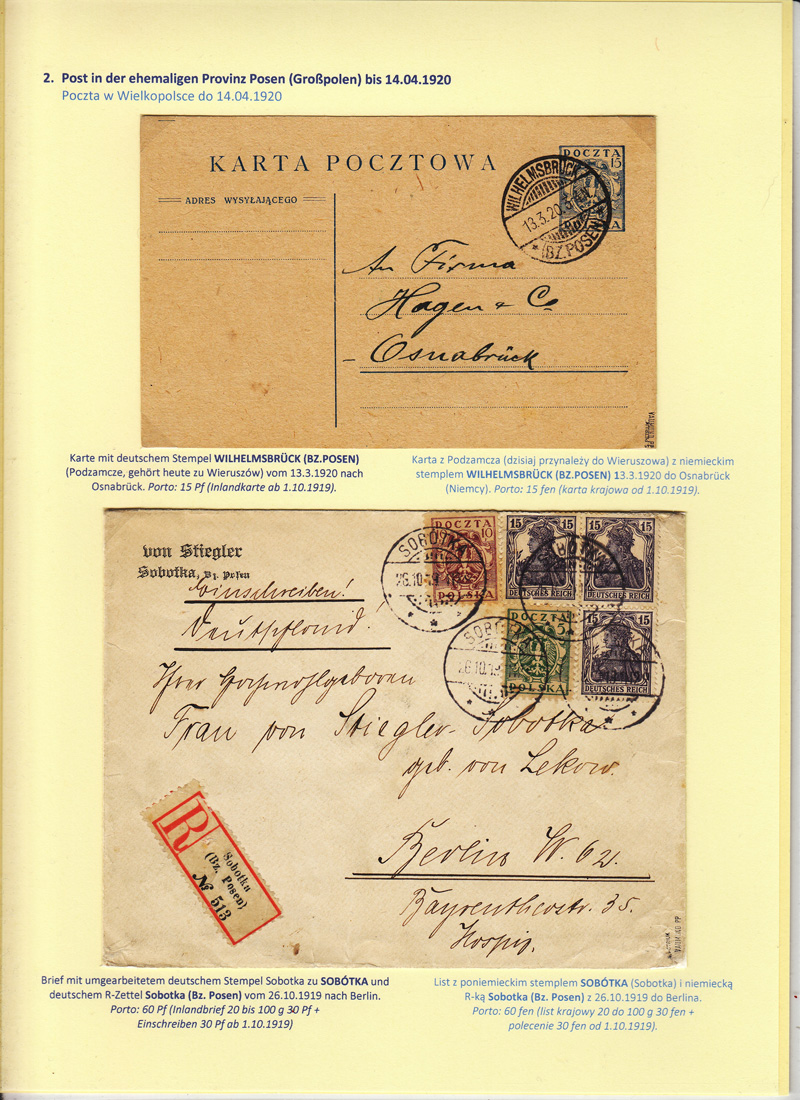 2. Post in der ehemaligen Provinz Posen (Großpolen) bis 14.04.1920
Poczta w Wielkopolsce do 14.04.1920
KARTA POCZTOWA
POCZTA
15
WILHELMSBRÜCK
13.3.20
(BZ.POSEN)
ADRES WYSYŁAJĄCEGO
An Firma
Hagen & Co
Osnabrück
Karte mit deutschem Stempel WILHELMSBRÜCK (BZ.POSEN)
(Podzamcze, gehört heute zu Wieruszów) vom 13.3.1920 nach
Osnabrück. Porto: 15 Pf (Inlandkarte ab 1.10.1919).
Karta z Podzamcza (dzisiaj przynależy do Wieruszowa) z niemieckim
stemplem WILHELMSBRÜCK (BZ.POSEN) 13.3.1920 do Osnabrück
(Niemcy). Porto: 15 fen (karta krajowa od 1.10.1919).
von Stiegler
Sobotka, Bz. Posen
Einschreiben!
Deutschland!
POCZTA
10
POLSKA
SOBÓTKA
26.10.19
15 15
DEUTSCHES REICH
15 15
DEUTSCHES REICH
POCZTA
5
POLSKA
26.10.19
15
DEUTSCHES REICH
Ihrer Hochwohlgeboren
Frau von Stiegler-Sobotka
geb. von Lekow.
Berlin W. 62.
Bayreutherstr. 35.
Hospiz.
R
Sobotka
(Bz. Posen)
№ 513
Brief mit umgearbeitetem deutschem Stempel Sobotka zu SOBÓTKA und
deutschem R-Zettel Sobotka (Bz. Posen) vom 26.10.1919 nach Berlin.
Porto: 60 Pf (Inlandbrief 20 bis 100 g 30 Pf +
Einschreiben 30 Pf ab 1.10.1919)
List z poniemieckim stemplem SOBÓTKA (Sobotka) i niemiecką
R-ką Sobotka (Bz. Posen) z 26.10.1919 do Berlina.
Porto: 60 fen (list krajowy 20 do 100 g 30 fen +
polecenie 30 fen od 1.10.1919).